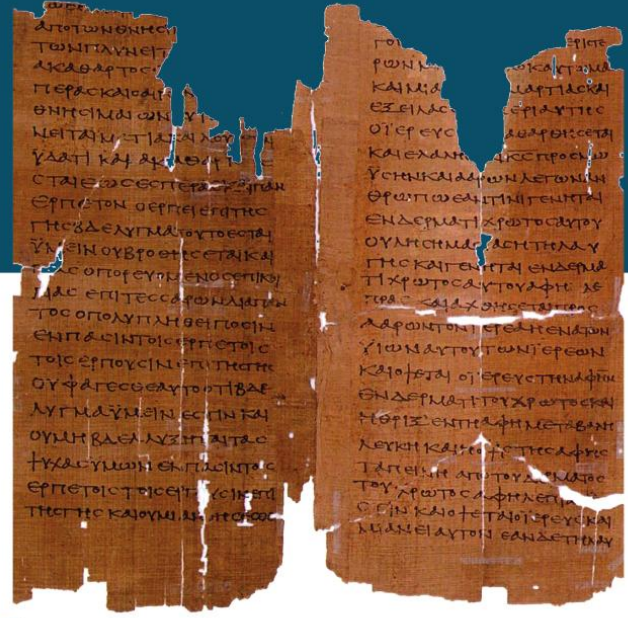 ΑΠΟΤΩΝΘΝΗCΙ
ΤΩΝΠΛΥΝΕΙΤ
ΑΚΑΘΑΡΤΟC
ΠΕΡΑCΚΑΙΟΑΙΡ
ΘΝΗCΙΜΑΙΩΝ
ΥΔΑΤΙ ΚΑΙ ΑΚΑΘΑΡ
CΤΑΙΕΩCΕCΠΕΡΑC ΚΑΙΠΑΝ
ΕΡΠΕΤΟΝ ΟΕΡΠΕΙΕΠΙΤΗC
ΓΗCΒΔΕΛΥΓΜΑΤΟΥΤΟΕCΤΑΙ
ΫΜΕΙΝΟΥΒΡΟΘΗCΕΤΑΙΚΑΙ
ΑC ΟΠΟΡΕΥΟΜΕΝΟCΕΠΙΚΟΙ
ΛΙΑC ΕΠΙΤΕCCΑΡΩΝΔΙΑΠΑΝ
ΤΟC ΟΠΟΛΥΠΛΗΘΕΙΠΟCΙΝ
ΕΝΠΑCΙΝΤΟΙC ΕΡΠΕΤΟΙC
ΤΟΙC ΕΡΠΟΥCΙΝ ΕΠΙΤΗCΓΗC
ΟΥΦΑΓΕCΘΕΑΥΤΟΟΤΙΒΔΕ
ΛΥΓΜΑΫΜΕΙΝ ΕCΤΙΝ ΚΑΙ
ΟΥΜΗΒΔΕΛΛΥΞΗΤΑΙΤΑC
ΨΥΧΑCΥΜΩΝ ΕΝΠΑCΙΝΤΟΙC
ΕΡΠΕΤΟΙC ΤΟΙCΕΡΠΟΥCΙΝΕΠΙ
ΤΗCΓΗC ΚΑΙΟΥΜΙΑΝΘΗCΕCΘΕ
ΕΡΙΤΕ
ΡΩΝ ΚΑΥΤΩΜΑ
ΚΑΙΜΙΑ ΜΑΡΤΙΑCΚΑΙ
ΕΞΕΙΛΑC ΕΡΙΑΥΤΗC
ΟΪΕΡΕΥC ΑΘΑΡΘΗCΕΤΑΙ
ΚΑΙΕΛΑΛΗ ΚCΠΡΟCΜΩ
ΫCΗΝΚΑΙΑΑΡΩΝΛΕΓΩΝΑΝ
ΘΡΩΠΩΕΑΝΤΙΝΙΓΕΝΗΤΑΙ
ΕΝΔΕΡΜΑΤΙΧΡΩΤΟCΑΥΤΟΥ
ΟΥΛΗCΗΜΑCΙΑCΗΤΗΛΑΥ
ΓΗC ΚΑΙΓΕΝΗΤΑΙ ΕΝΔΕΡΜΑ
ΤΙΧΡΩΤΟCΑΥΤΟΥΑΦΗ ΛΕ
ΠΡΑC ΚΑΙΑΧΘΗCΕΤΑΙΠΡΟC
ΑΑΡΩΝΤΟΝΪΕΡΕΑΗΕΝΑΤΩΝ
ΫΙΩΝΑΥΤΟΥΤΩΝΪΕΡΕΩΝ
ΚΑΙΟΨΕΤΑΙ ΟΪΕΡΕΥCΤΗΝΑΦΗΝ
ΕΝΔΕΡΜΑΤΙΤΟΥΧΡΩΤΟCΚΑΙ
ΗΘΡΙΞ ΕΝΤΗΑΦΗΜΕΤΑΒΑΛΗ
ΛΕΥΚΗ ΚΑΙΗΟΨΙCΤΗCΑΦΗC
ΤΑΠΕΙΝΗ ΑΠΟΤΟΥΔΕΡΜΑΤΟC
ΤΟΥ ΧΡΩΤΟC ΑΦΗΛΕΠΡΑC Ε
CΤΙΝ ΚΑΙΟΨΕΤΑΙΟΪΕΡΕΥCΚΑΙ
ΜΙΑΝΕΙΑΥΤΟΝ ΕΑΝΔΕΤΗΛΑΥ